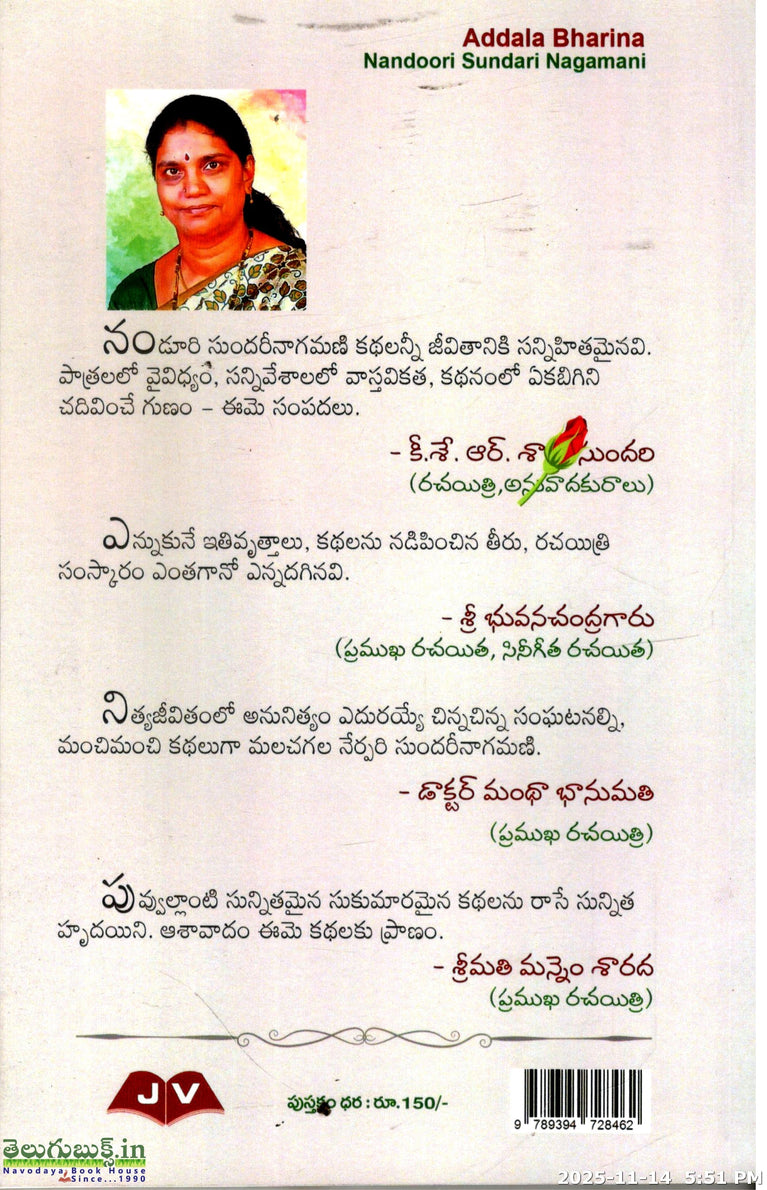 Addala Bharina
Nandoori Sundari Nagamani
నండూరి సుందరీనాగమణి కథలన్నీ జీవితానికి సన్నిహితమైనవి.
పాత్రలలో వైవిధ్యం, సన్నివేశాలలో వాస్తవికత, కథనంలో ఏకబిగిని
చదివించే గుణం – ఈమె సంపదలు.
- కీ.శే. ఆర్. సుందరి
(రచయిత్రి,అనువాదకురాలు)
ఎన్నుకునే ఇతివృత్తాలు, కథలను నడిపించిన తీరు, రచయిత్రి
సంస్కారం ఎంతగానో ఎన్నదగినవి.
- శ్రీ భువనచంద్రగారు
(ప్రముఖ రచయిత, సినీగీత రచయిత)
నిత్యజీవితంలో అనునిత్యం ఎదురయ్యే చిన్నచిన్న సంఘటనల్ని,
మంచిమంచి కథలుగా మలచగల నేర్పరి సుందరీనాగమణి.
- డాక్టర్ మంథా భానుమతి
(ప్రముఖ రచయిత్రి)
పువ్వుల్లాంటి సున్నితమైన సుకుమారమైన కథలను రాసే సున్నిత
హృదయిని. ఆశావాదం ఈమె కథలకు ప్రాణం.
- శ్రీమతి మన్నెం శారద
(ప్రముఖ రచయిత్రి)
J V
పుస్తకం ధర : రూ.150/-
9 789394 728462
తెలుగుబుక్స్.in
Navodaya Book House
Since...1990
2025-11-14 5:51 PM